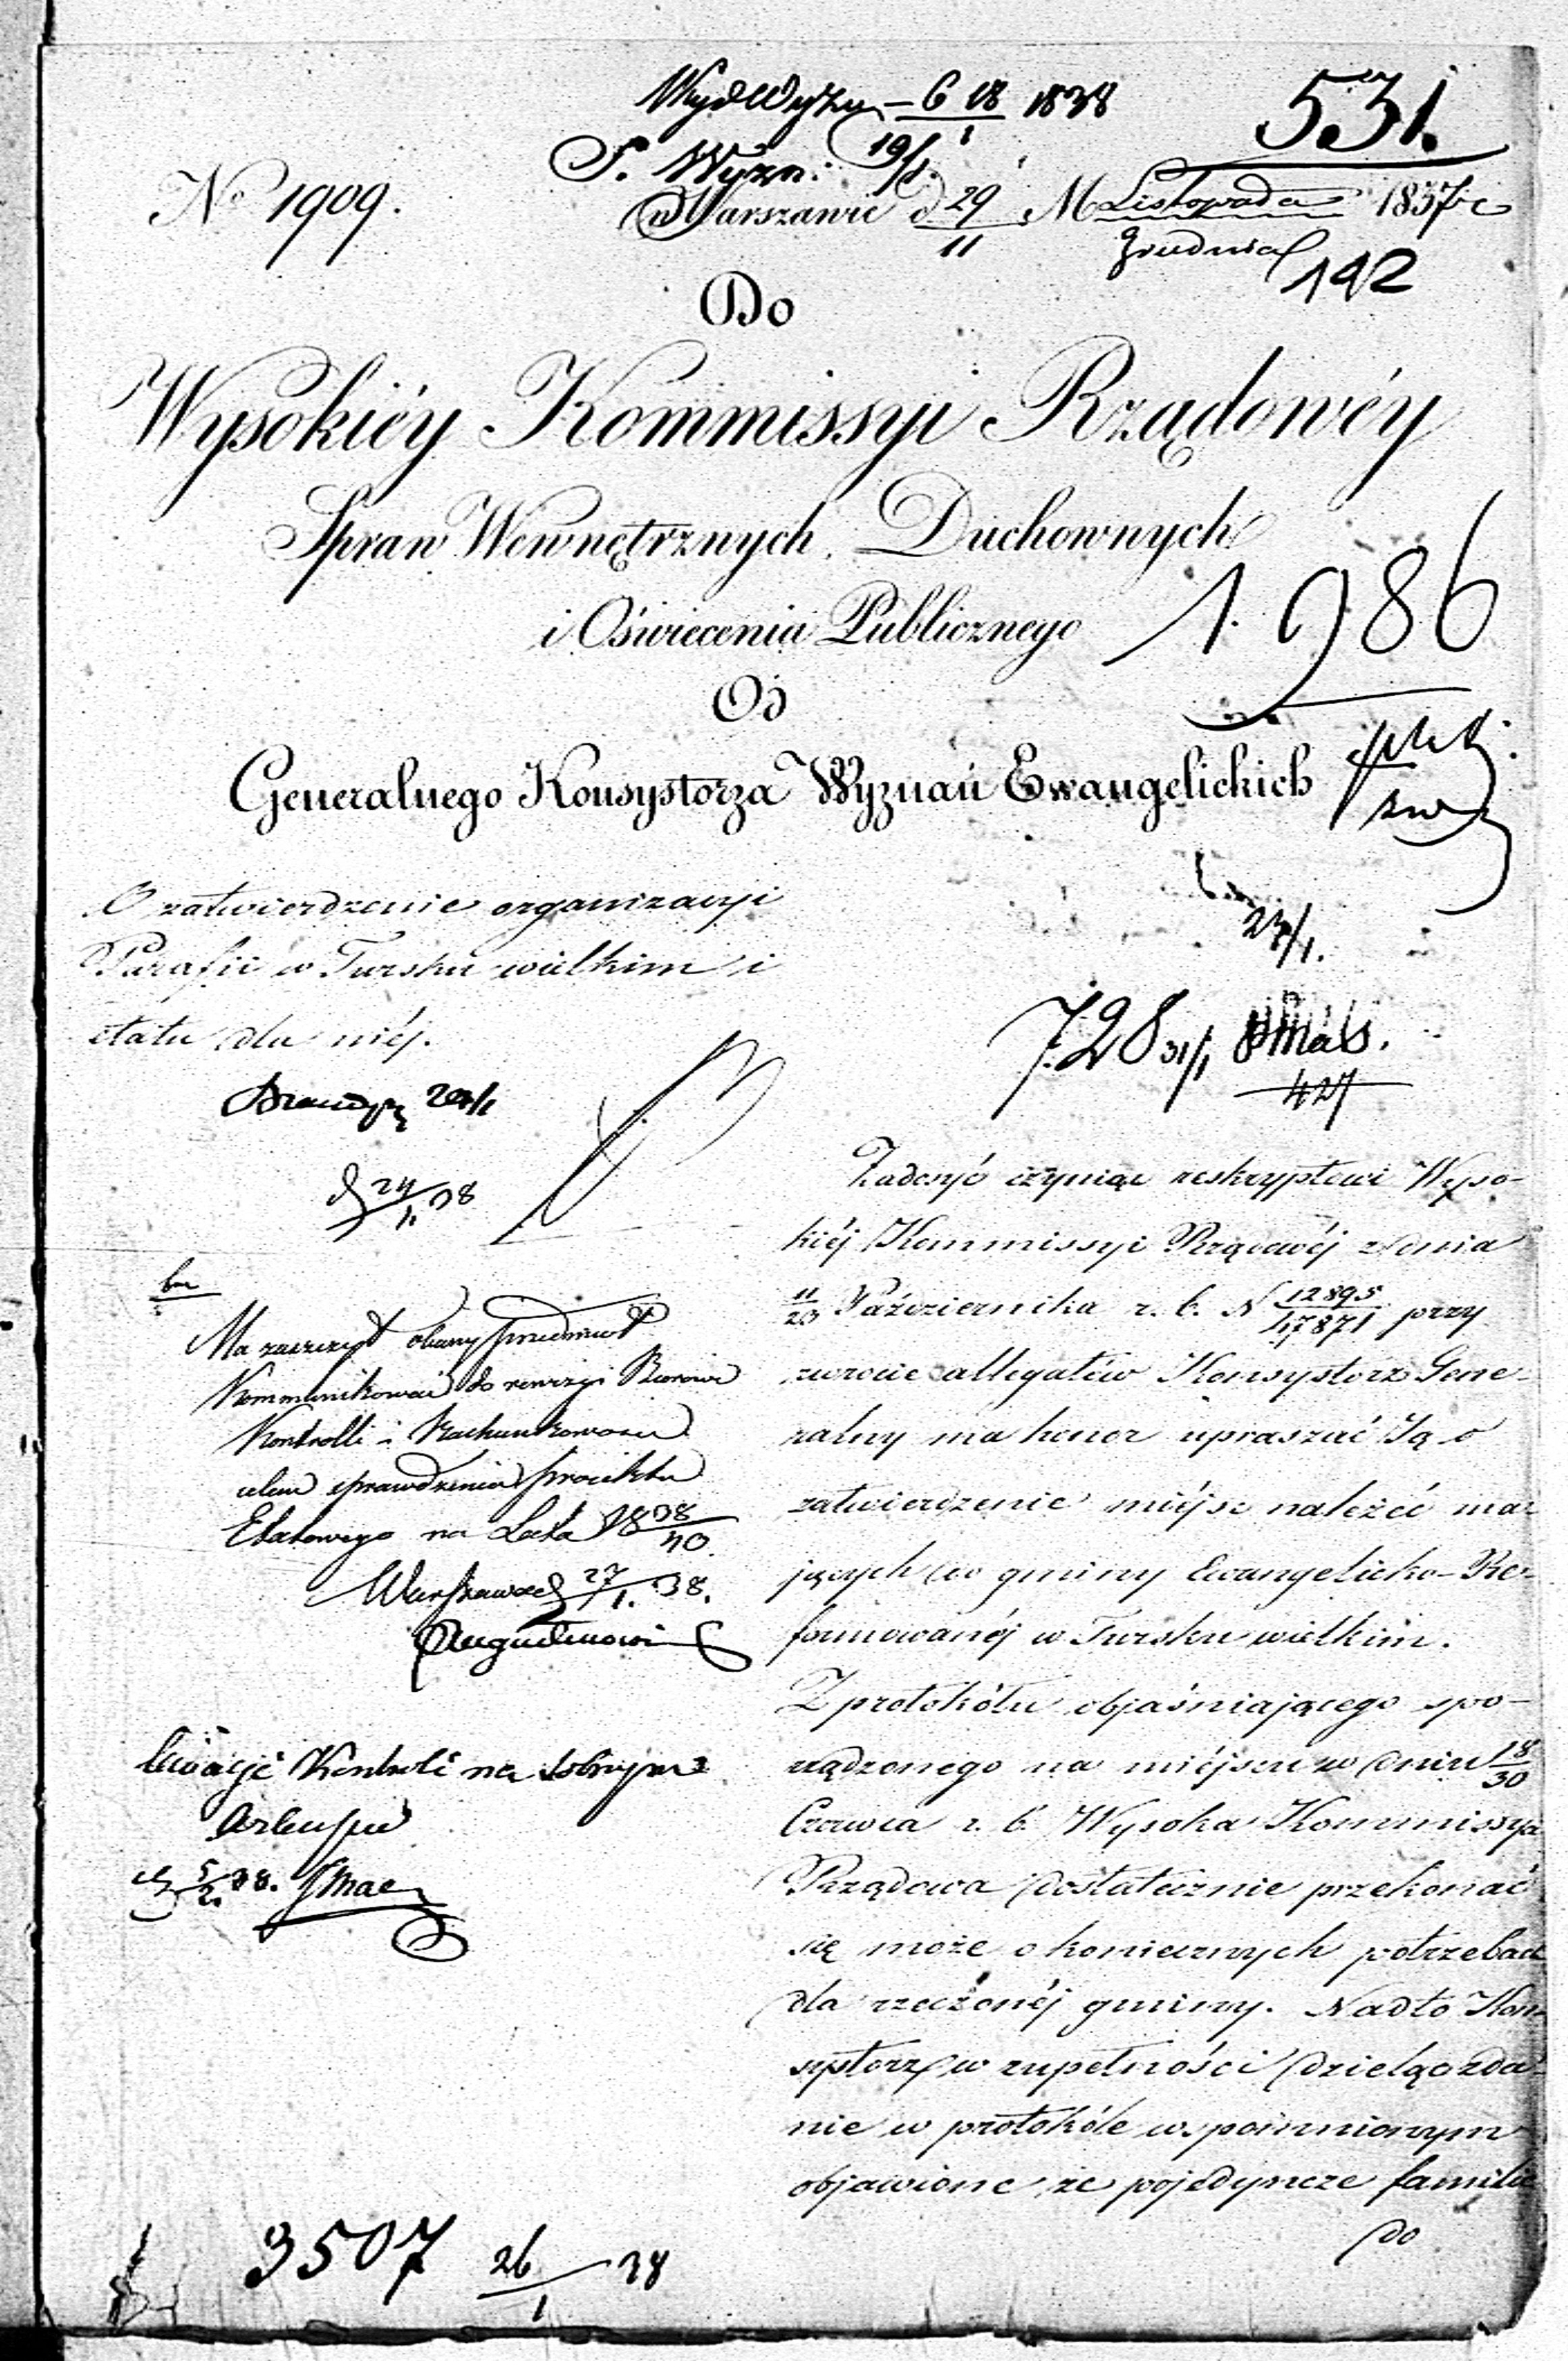 6 18 1838
531.
S. Wyzn: 19/1.
No 1909.
w Warszawie d 29/11 M Listopada/Grudnia 1837 r
142
Do
Wysokiéy Kommissyi Rządowéy
Spraw Wewnętrznych, Duchownych
i Oświecenia Publicznego
1.986
Od
Generalnego Konsystorza Wyznań Ewangelickich
O zatwierdzenie organizacyi
Parafii w Tursku wielkim i
etatu dla niéj.
23/1.
728 31/1
427
d 24/1. 38
Ma zaszczyt obecny przedmiot
Kommunikować do rewizyi Biorowi
Kontrolli i Rachunkowości
celem sprawdzenia projektu
Etatowego na Lata 1838/40
Warszawa d 27/1. 38.
Kontroli na
5/2 38.
3507 26/1 38
Zadosyć czyniąc reskryptowi Wyso-
kiéj Kommissyi Rządowéj z dnia
11/23 Października r. b. N 12895/17871 przy
zwrocie allegatów Konsystorz Gene-
ralny ma honor upraszać Ją o
zatwierdzenie miéjsc należéć ma-
jących do gminy Ewangelicko-Re-
formowanéj w Tursku wielkim.
Z protokółu objaśniającego spo-
rządzonego na miéjscu w dniu 18/30
Czerwca r. b. Wysoka Kommissya
Rządowa dostatecznie przekonać
się może o koniecznych potrzebach
dla rzeczonéj gminy. Nadto Kon-
systorz w zupełności dzieląc zda-
nie w protokóle wspomnionym
objawione, że pojedyncze familie
do